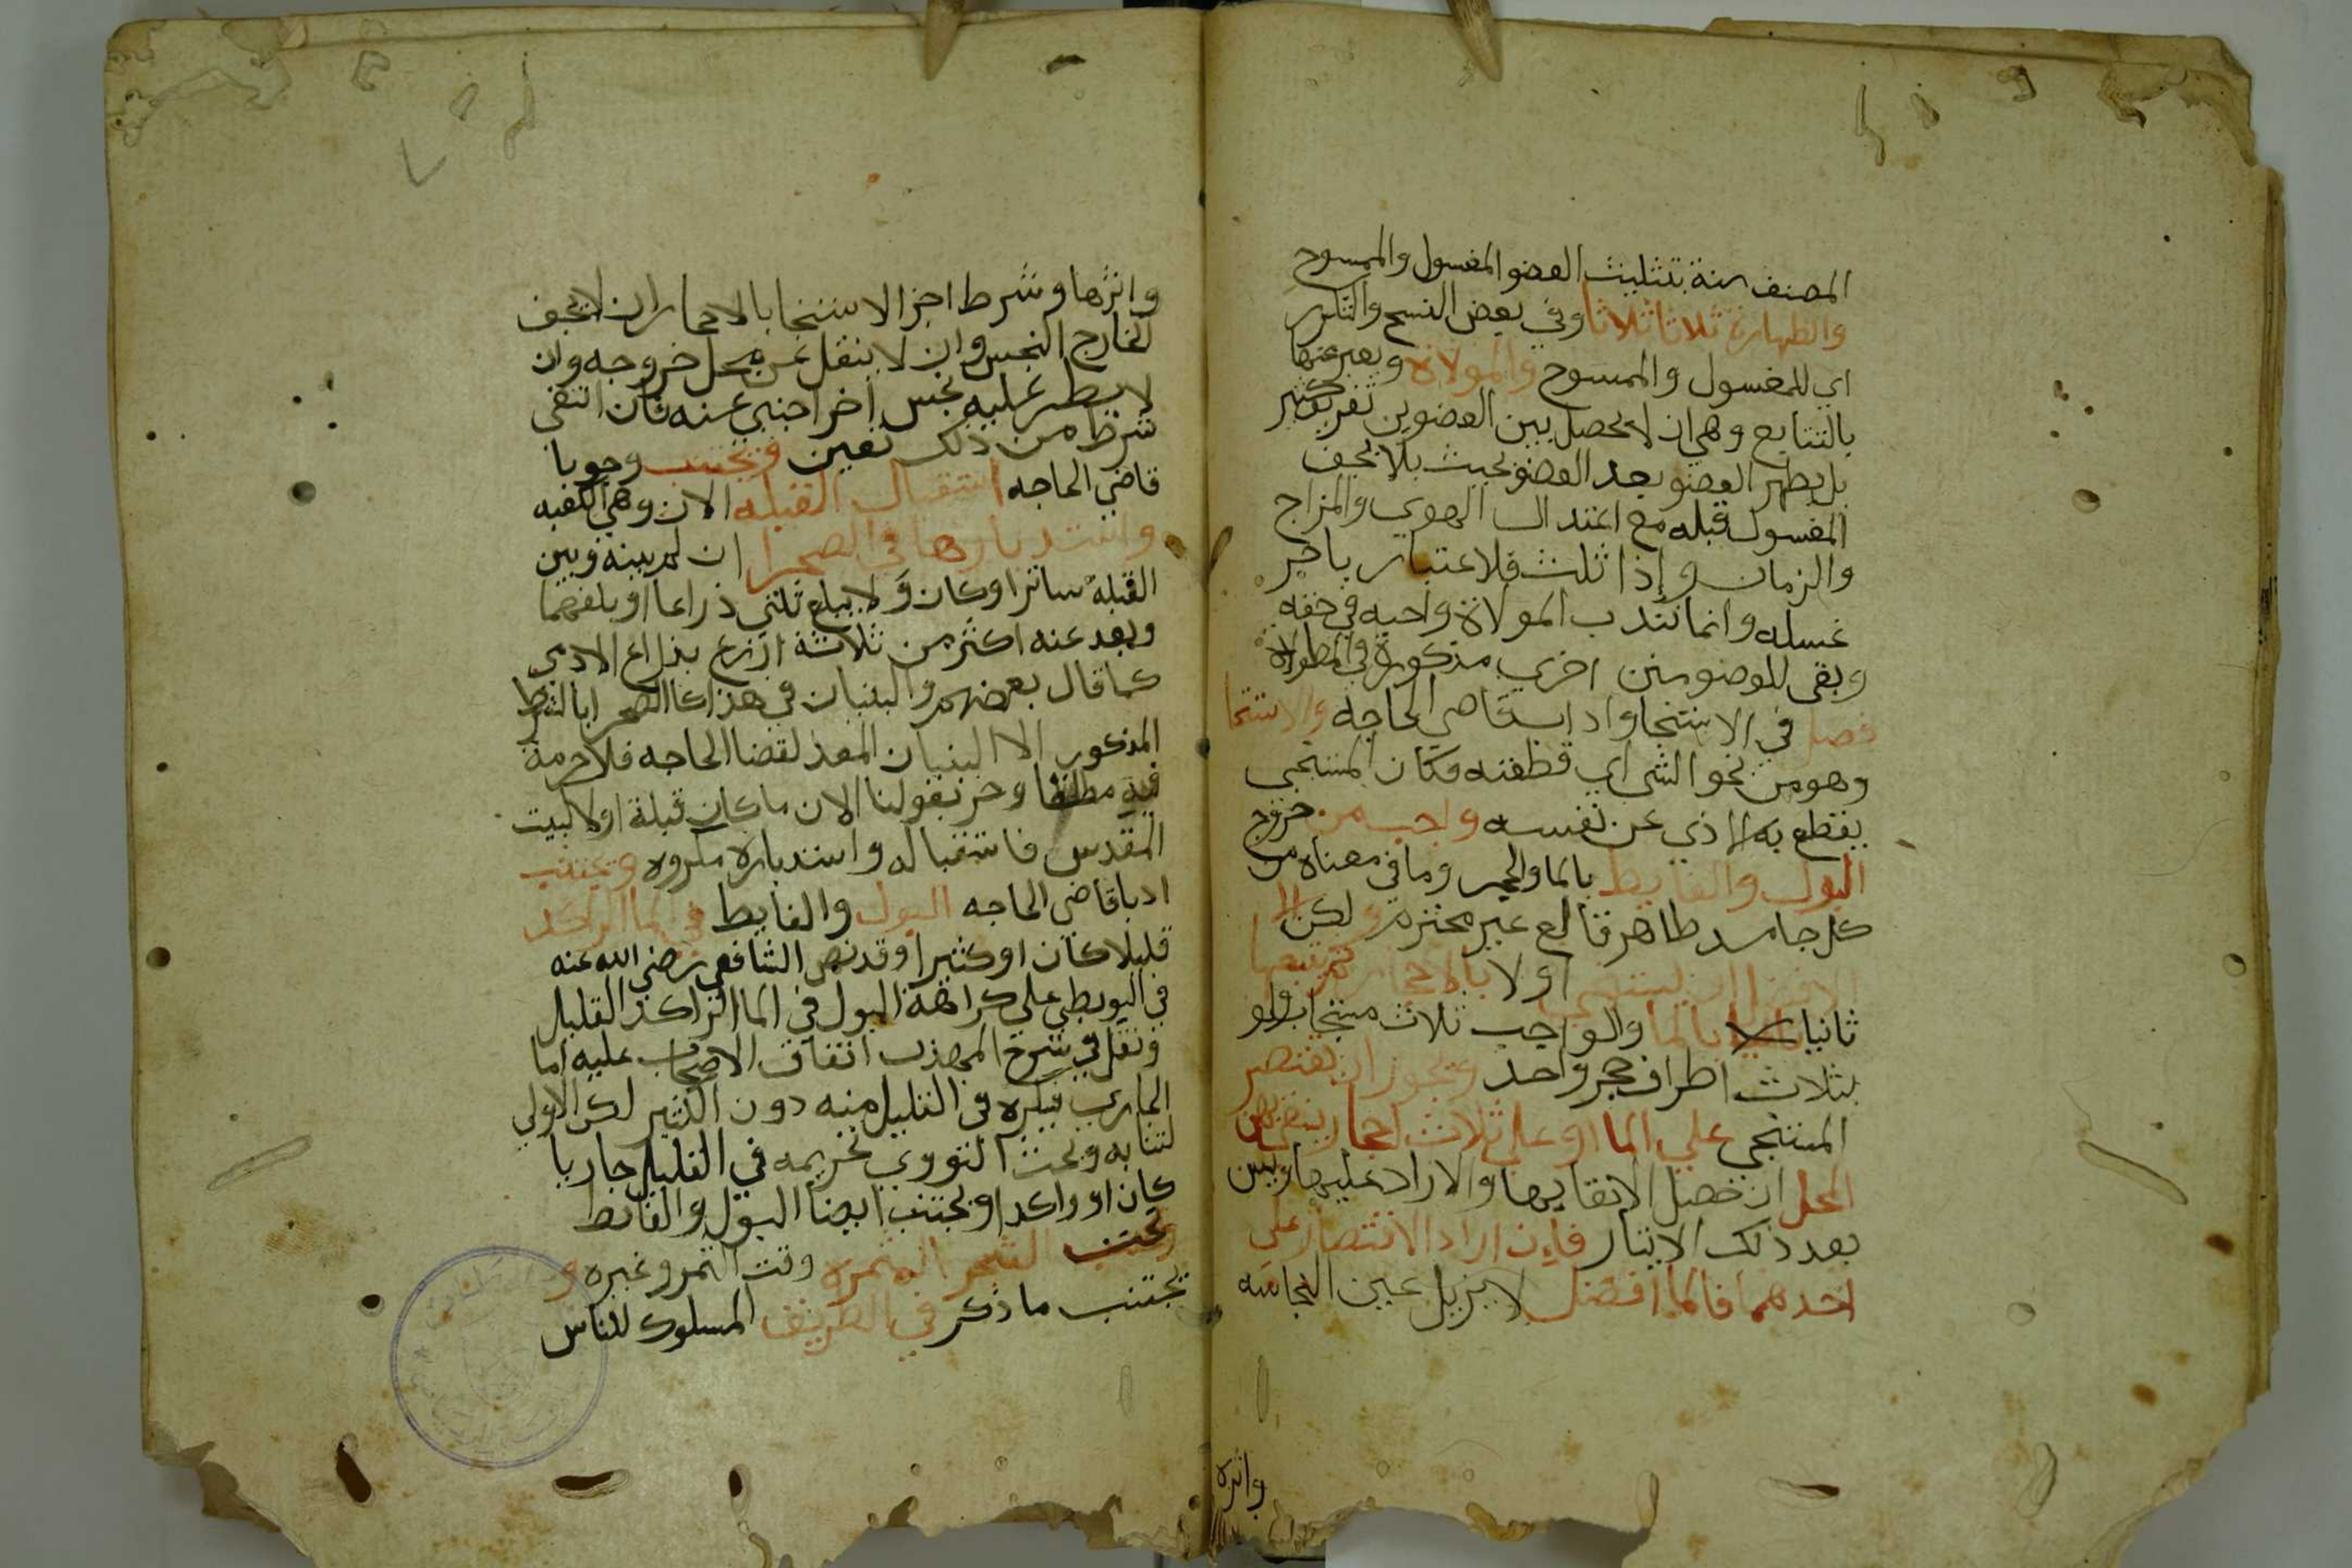 المصنف سنة تثليث العضو المغسول والممسوح
والطهارة ثلاثا ثلاثا وفي بعض النسخ والتكرر
اي للمغسول والممسوح والمولاة ويعبر عنها
بالتتابع وهي ان لا يحصل بين العضوين تفريق كثير
بل يطهر العضو بعد العضو بحيث بلا يجف
المغسول قبله مع اعتدال الهوي والمزاج
والزمان وإذا ثلث فلا اعتبار باخر
غسله وانما تندب المولاة واجبه في حقه
وبقي للوضو سنن اخري مذكورة في المطولاة
فصل في الاستنجا واداب قاضي الحاجه والاستنجا
وهو من نجو الشي اي قطعته فكان المستنجي
يقطع به الاذي عن نفسه واجب من خروج
البول والغايط بالما والحجر وما في معناه من
كل جامد طاهر قالع غير محترم ولكن الا
الافضل ان يستنجي اولا بالاحجار ثم يتبعها
ثانيا بالما والواجب ثلاث مسحات ولو
بثلاث اطراف حجر واحد ويجوز ان يقتصر
المستنجي علي الما او علي ثلاث احجار ينقي بهن
المحل ان حصل الانقا بها والا زاد عليها ويسن
بعد ذلك الايتار فإن اراد الاقتصار علي
احدهما فالما افضل لا يزيل عين النجاسه
واثره
واثرها وشرط اجزا الاستنجا بالاحجار ان لا يجف
الخارج النجس وان لا ينتقل عن محل خروجه وان
لا يطر عليه نجس اخر اجنبي عنه فان انتفي
شرط من ذلك تعين ويجتنب وجوبا
قاضي الحاجه استقبال القبله الان وهي الكعبه
واستدبارها في الصحرا ان لم بينه وبين
القبله ساترا او كان ولا يبلغ ثلثي ذراعا او بلغهما
وبعد عنه اكثر من ثلاثة اذرع بذراع الادمي
كما قال بعضهم والبنيان في هذا كالصحرا بالشرط
المذكور الا البنيان المعد لقضا الحاجه فلا حرمة
فيه مطلقا وخرج بقولنا الان ما كان قبلة اولا كبيت
المقدس فاستقباله واستدباره مكروه ويجتنب
ادبا قاضي الحاجه البول والغايط في الما الراكد
قليلا كان او كثيرا وقد نص الشافعي رضي الله عنه
في البويطي علي كراهة البول في الما الراكد القليل
ونقل في شرح المهذب اتفاق الاصحاب عليه اما
الجاري فيكره في القليل منه دون الكثير لكن الاولي
اجتنابه وبحث النووي تحريمه في القليل جاريا
كان او راكدا ويجتنب ايضا البول والغايط
تحت الشجر المثمرة وقت الثمر وغيره و
يجتنب ما ذكر في الطريق المسلوك للناس